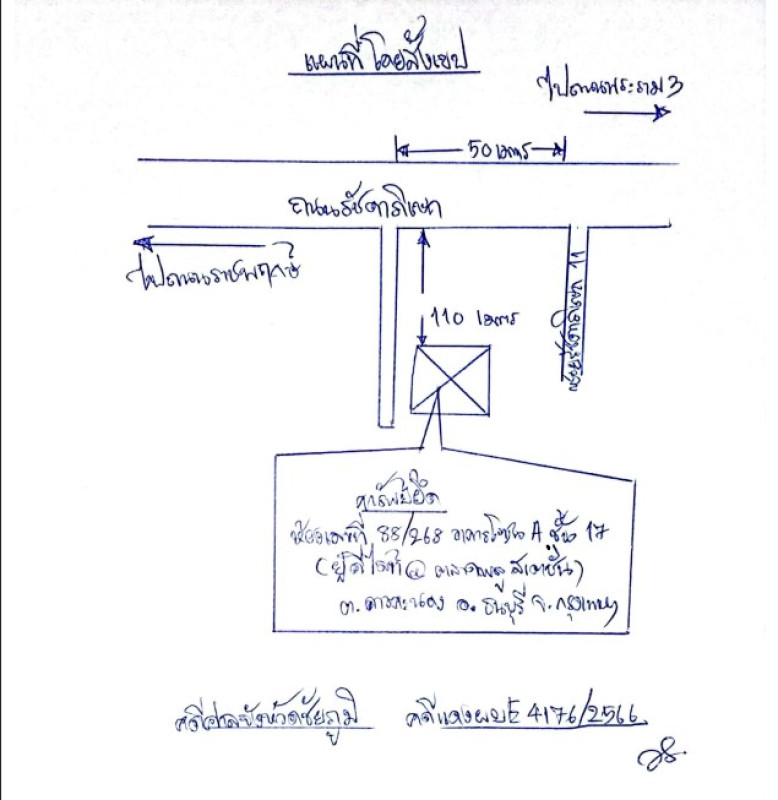 แผนที่โดยสังเขป
ไปถนนพระราม 3
50 เมตร
ถนนรัชดาภิเษก
ไปถนนราชพฤกษ์
110 เมตร
ซอยรัชดาภิเษก 11
ทรัพย์ยึด
ห้องเลขที่ 88/268 อาคารโซน A ชั้น 17
(ยู่ดีไรท์ @ ตลาดพลู สเตชั่น)
ต. ดาวคะนอง อ. ธนบุรี จ. กรุงเทพฯ
คดีศาลจังหวัดชัยภูมิ คดีแดงผบE 4176/2566